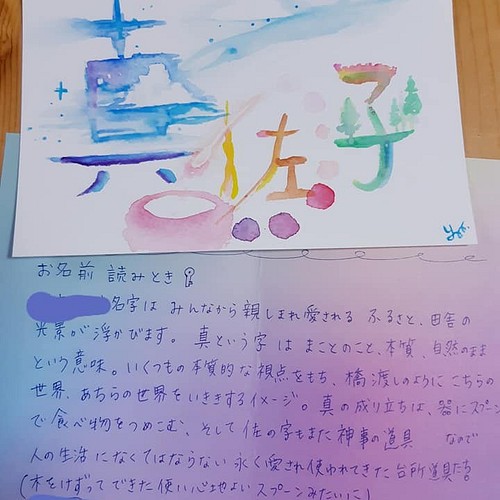 真佐子
お名前 読みとき
名字は みんなから 親しまれ愛される ふるさと、田舎の
光景が浮かびます。 真という字 は まことのこと、本質、自然のまま
という意味。いくつもの本質的な視点をもち、橋渡しのように こちらの
世界、あちらの世界をいききするイメージ。真の成り立ちは、器にスプーン
で食べ物をつめこむ、そして 佐の字もまた 神事の道具 なので
人の生活 になくてはならない 永く愛され使われてきた 台所道具たち
(木をけずって できた 使い心地よい スプーンみたいに)